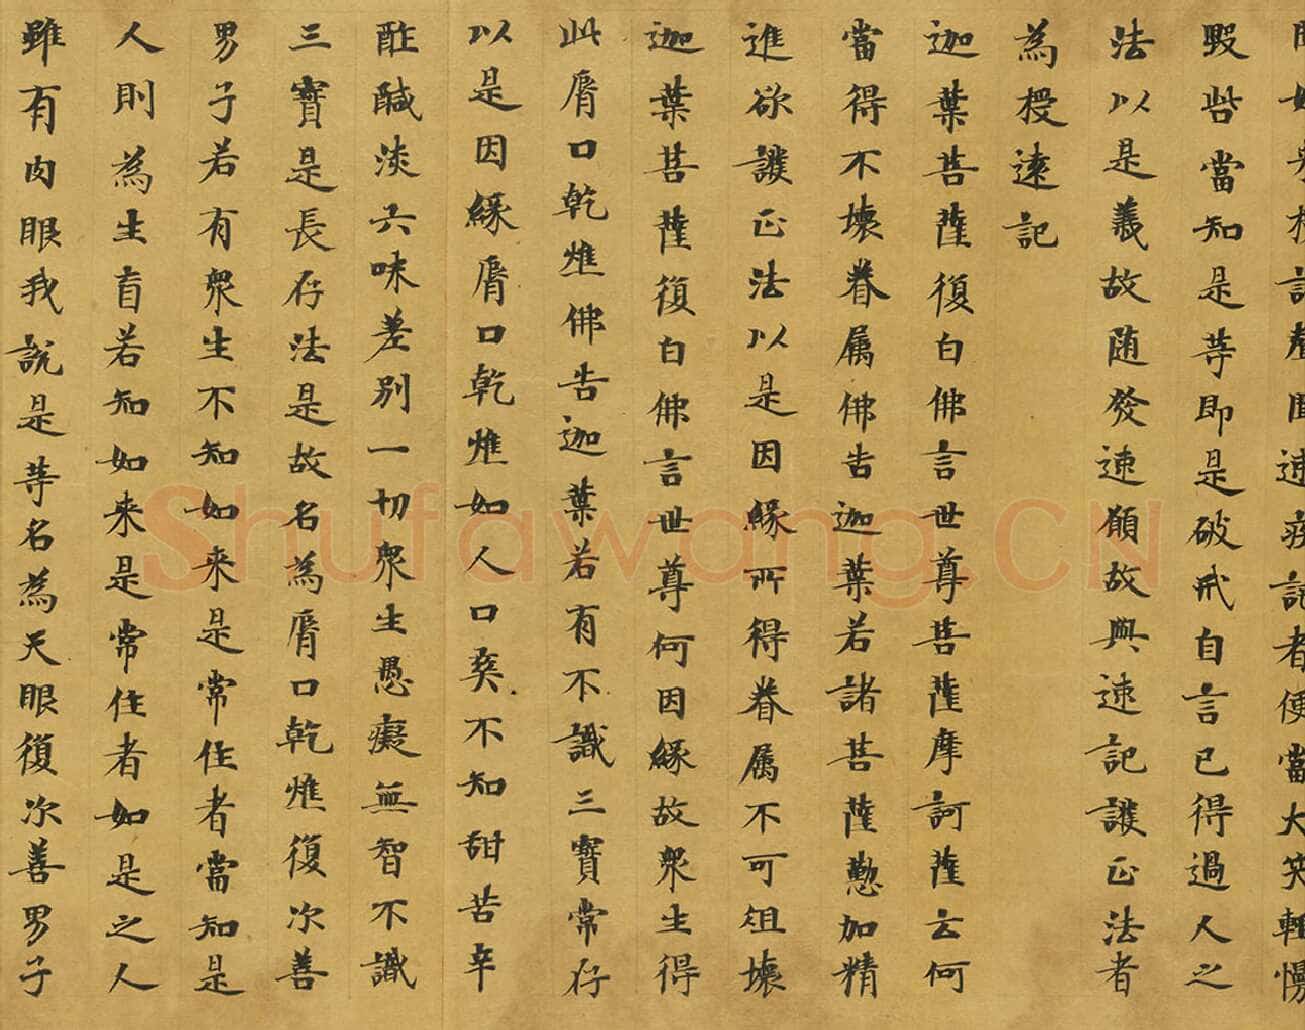 授記聲聞速疾記者便當大笑輕慢
毀呰當知是等即是破戒自言已得過人之
法以是義故随發速願故與速記護正法者
為授遠記
迦葉菩薩復白佛言世尊菩薩摩訶薩云何
當得不壞眷屬佛告迦葉若諸菩薩懃加精
進欲護正法以是因緣所得眷屬不可俎壞
迦葉菩薩復白佛言世尊何因緣故眾生得
此脣口乾燋佛告迦葉若有不識三寶常存
以是因緣脣口乾燋如人口爽不知甜苦辛
酢鹹淡六味差別一切眾生愚癡無智不識
三寶是長存法是故名為脣口乾燋復次善
男子若有眾生不知如来是常住者當知是
人則為生盲若知如来是常住者如是之人
雖有肉眼我說是等名為天眼復次善男子
Shufawang.CN